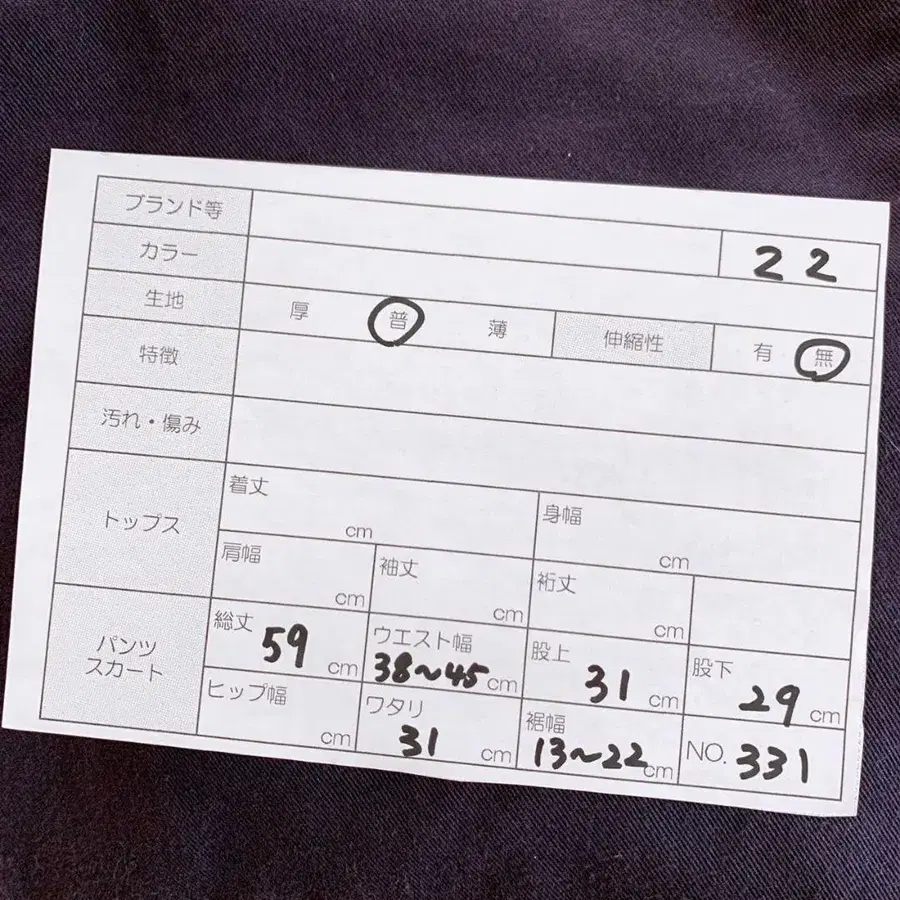 ブランド等
22
カラー
生地 厚 普 薄 伸縮性 有 無
特徴
汚れ・傷み
トップス
着丈 cm 身幅 cm
肩幅 cm 袖丈 cm 裄丈 cm
パンツ
スカート
総丈 59 cm ウエスト幅 38~45 cm 股上 31 cm 股下 29 cm
ヒップ幅 cm ワタリ 31 cm 裾幅 13~22 cm NO. 331